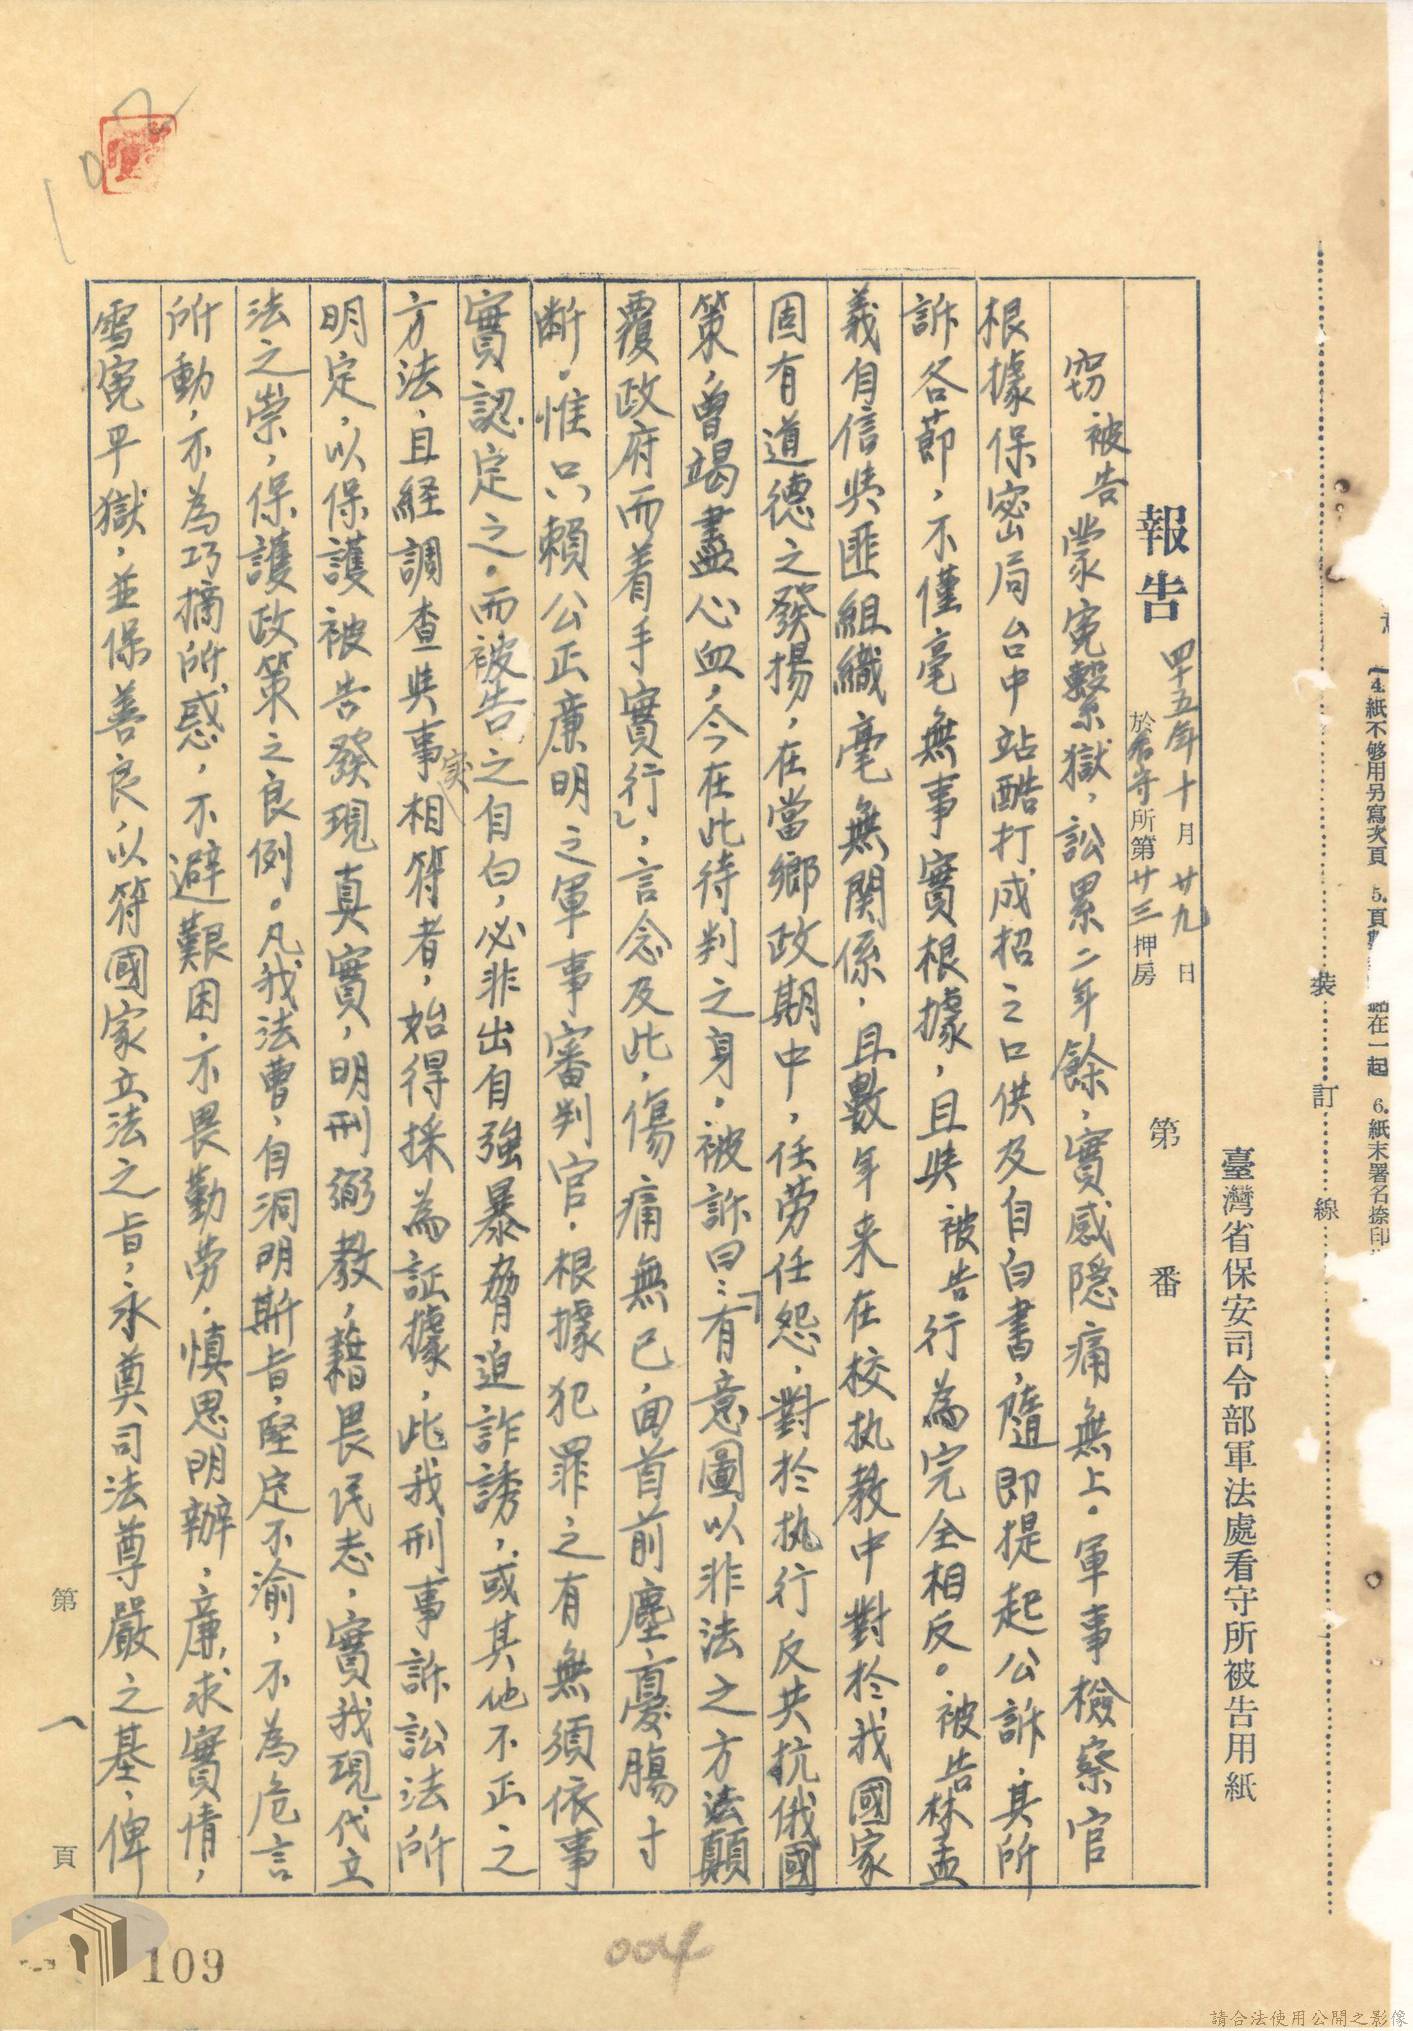 4.紙不够用另寫次頁 5.頁 在一起 6.紙末署名捺印
裝 訂 線
臺灣省保安司令部軍法處看守所被告用紙
報告 四十五年十月廿九日 第 番
於看守所第廿三押房
窃被告蒙寃繫獄，訟累二年餘，實感隱痛無上。軍事檢察官
根據保密局台中站酷打成招之口供及自白書，隨即提起公訴，其所
訴各節，不僅毫無事實根據，且與被告行為完全相反。被告林孟
義自信與匪組織毫無関係，且數年来在校执教中對於我國家
固有道德之發揚，在當鄉政期中，任劳任怨，對於执行反共抗俄國
策，曾竭盡心血，今在此待判之身，被訴曰：「有意圖以非法之方法顛
覆政府而着手實行」，言念及此，傷痛無已，回首前塵，憂腸寸
断。惟只賴公正廉明之軍事審判官，根據犯罪之有無須依事
實認定之。而被告之自白，必非出自強暴脅迫詐誘，或其他不正之
方法，且経調查與事實相符者，始得採為証據，此我刑事訴訟法所
明定，以保護被告發現真實，明刑弼教，藉畏民志，實我現代立
法之崇，保護政策之良例。凡我法曹，自洞明斯旨，堅定不渝，不為危言
所動，不為巧摘所惑，不避艱困，不畏勤勞，慎思明辦，廉求實情，
雪寃平獄，並保善良，以符國家立法之旨，永奠司法尊嚴之基，俾
第 一 頁
109
004
請合法使用公開之影像